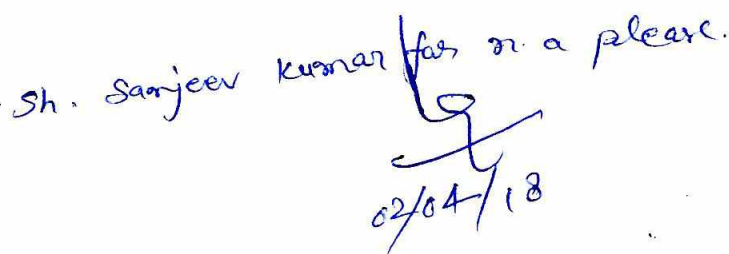 Sh. Sanjeev Kumar for n.a please.
02/04/18